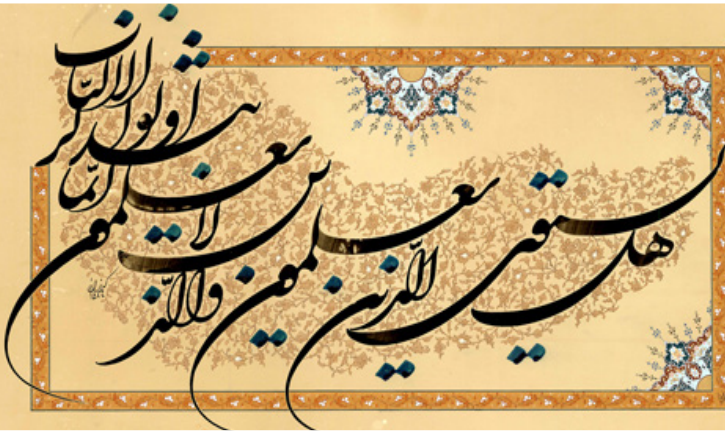 هل یستوی الّذین یعلمون والّذین لا یعلمون انّما یتذکر اولوا الالباب